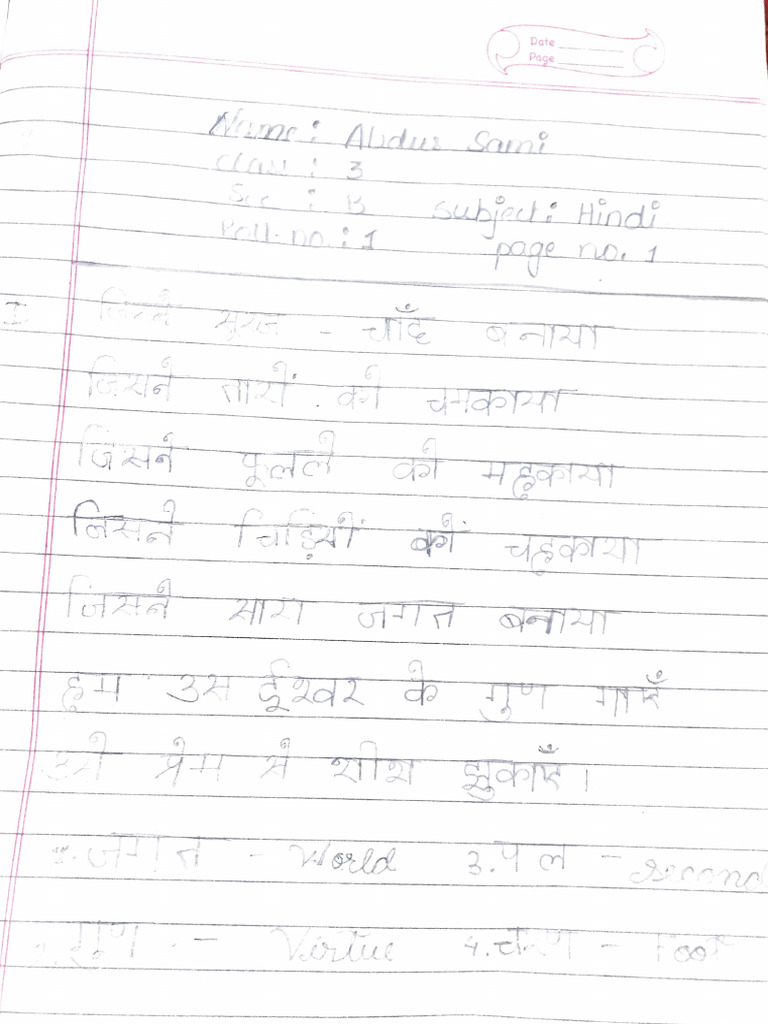 Date
Page
Name: Abdur Sami
Class: 3
Sec : B subject: Hindi
Roll.no.:1 page no. 1
I. जिसने सूरज - चाँद बनाया
जिसने तारों को चमकाया
जिसने फूलले को महकाया
जिसने चिड़ियों को चहकाया
जिसने सारा जगत बनाया
हम उस ईश्वर के गुण गाएँ
उसे प्रेम से शीश झुकाएँ।
1. जगत - World 3. पल - second
2. गुण - Virtue 4. चरण - Foot